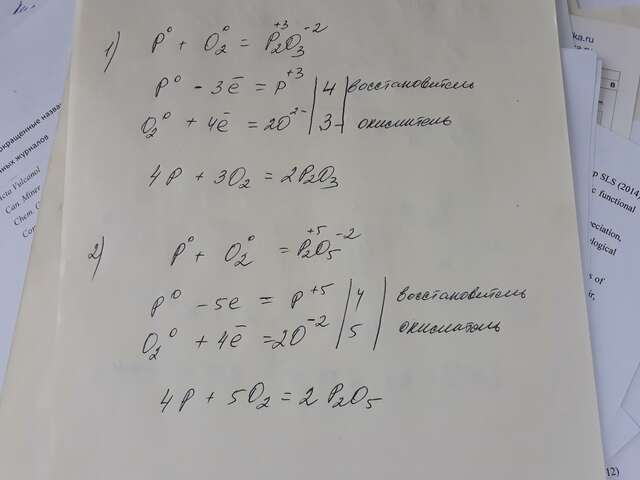 1) P⁰ + O₂⁰ = P₂⁺³O₃⁻²
P⁰ - 3ē = P⁺³ | 4 | восстановитель
O₂⁰ + 4ē = 2O²⁻ | 3 | окислитель
4P + 3O₂ = 2P₂O₃
2) P⁰ + O₂⁰ = P₂⁺⁵O₅⁻²
P⁰ - 5e = P⁺⁵ | 4 | восстановитель
O₂⁰ + 4ē = 2O⁻² | 5 | окислитель
4P + 5O₂ = 2P₂O₅
нных журналов
cta Vulcanol
Can. Miner
Chem. G
ka.ru
p SLS (2014)
ic functional
eciation,
ological
s of
ir,
12)